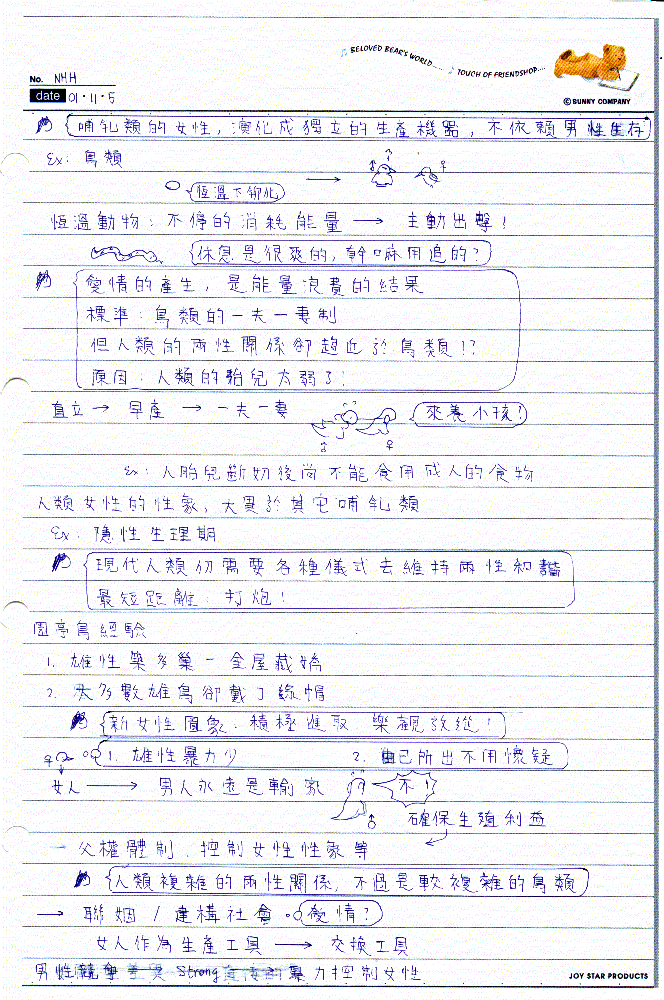 BELOVED BEAR'S WORLD.....
TOUCH OF FRIENDSHIP....
No. NHH
date 01·11·5
© BUNNY COMPANY
哺乳類的女性，演化成獨立的生產機器，不依賴男性生存
Ex: 鳥類
恆溫下孵化
恆溫動物：不停的消耗能量 → 主動出擊！
休息是很爽的，幹嘛用追的？
愛情的產生，是能量浪費的結果
標準：鳥類的一夫一妻制
但人類的兩性關係卻趨近於鳥類！？
原因：人類的胎兒太弱了！
直立 → 早產 → 一夫一妻
來養小孩！
♂ ♀
Ex: 人胎兒斷奶後尚不能食用成人的食物
人類女性的性象，大異於其它哺乳類
Ex: 隱性生理期
現代人類仍需要各種儀式去維持兩性和諧
最短距離：打炮！
園亭鳥經驗
1. 雄性築多巢 - 金屋藏嬌
2. 大多數雄鳥卻戴了綠帽
新女性圖象：積極進取 樂觀放縱！
♀ 1. 雄性暴力少 2. 自己所出不用懷疑
女人 → 男人永遠是輸家
不！
♂ 確保生殖利益
- 父權體制：控制女性性象等
人類複雜的兩性關係，不過是較複雜的鳥類
→ 聯姻 / 建構社會 愛情？
女人作為生產工具 → 交換工具
男性 Strong 暴力控制女性
JOY STAR PRODUCTS